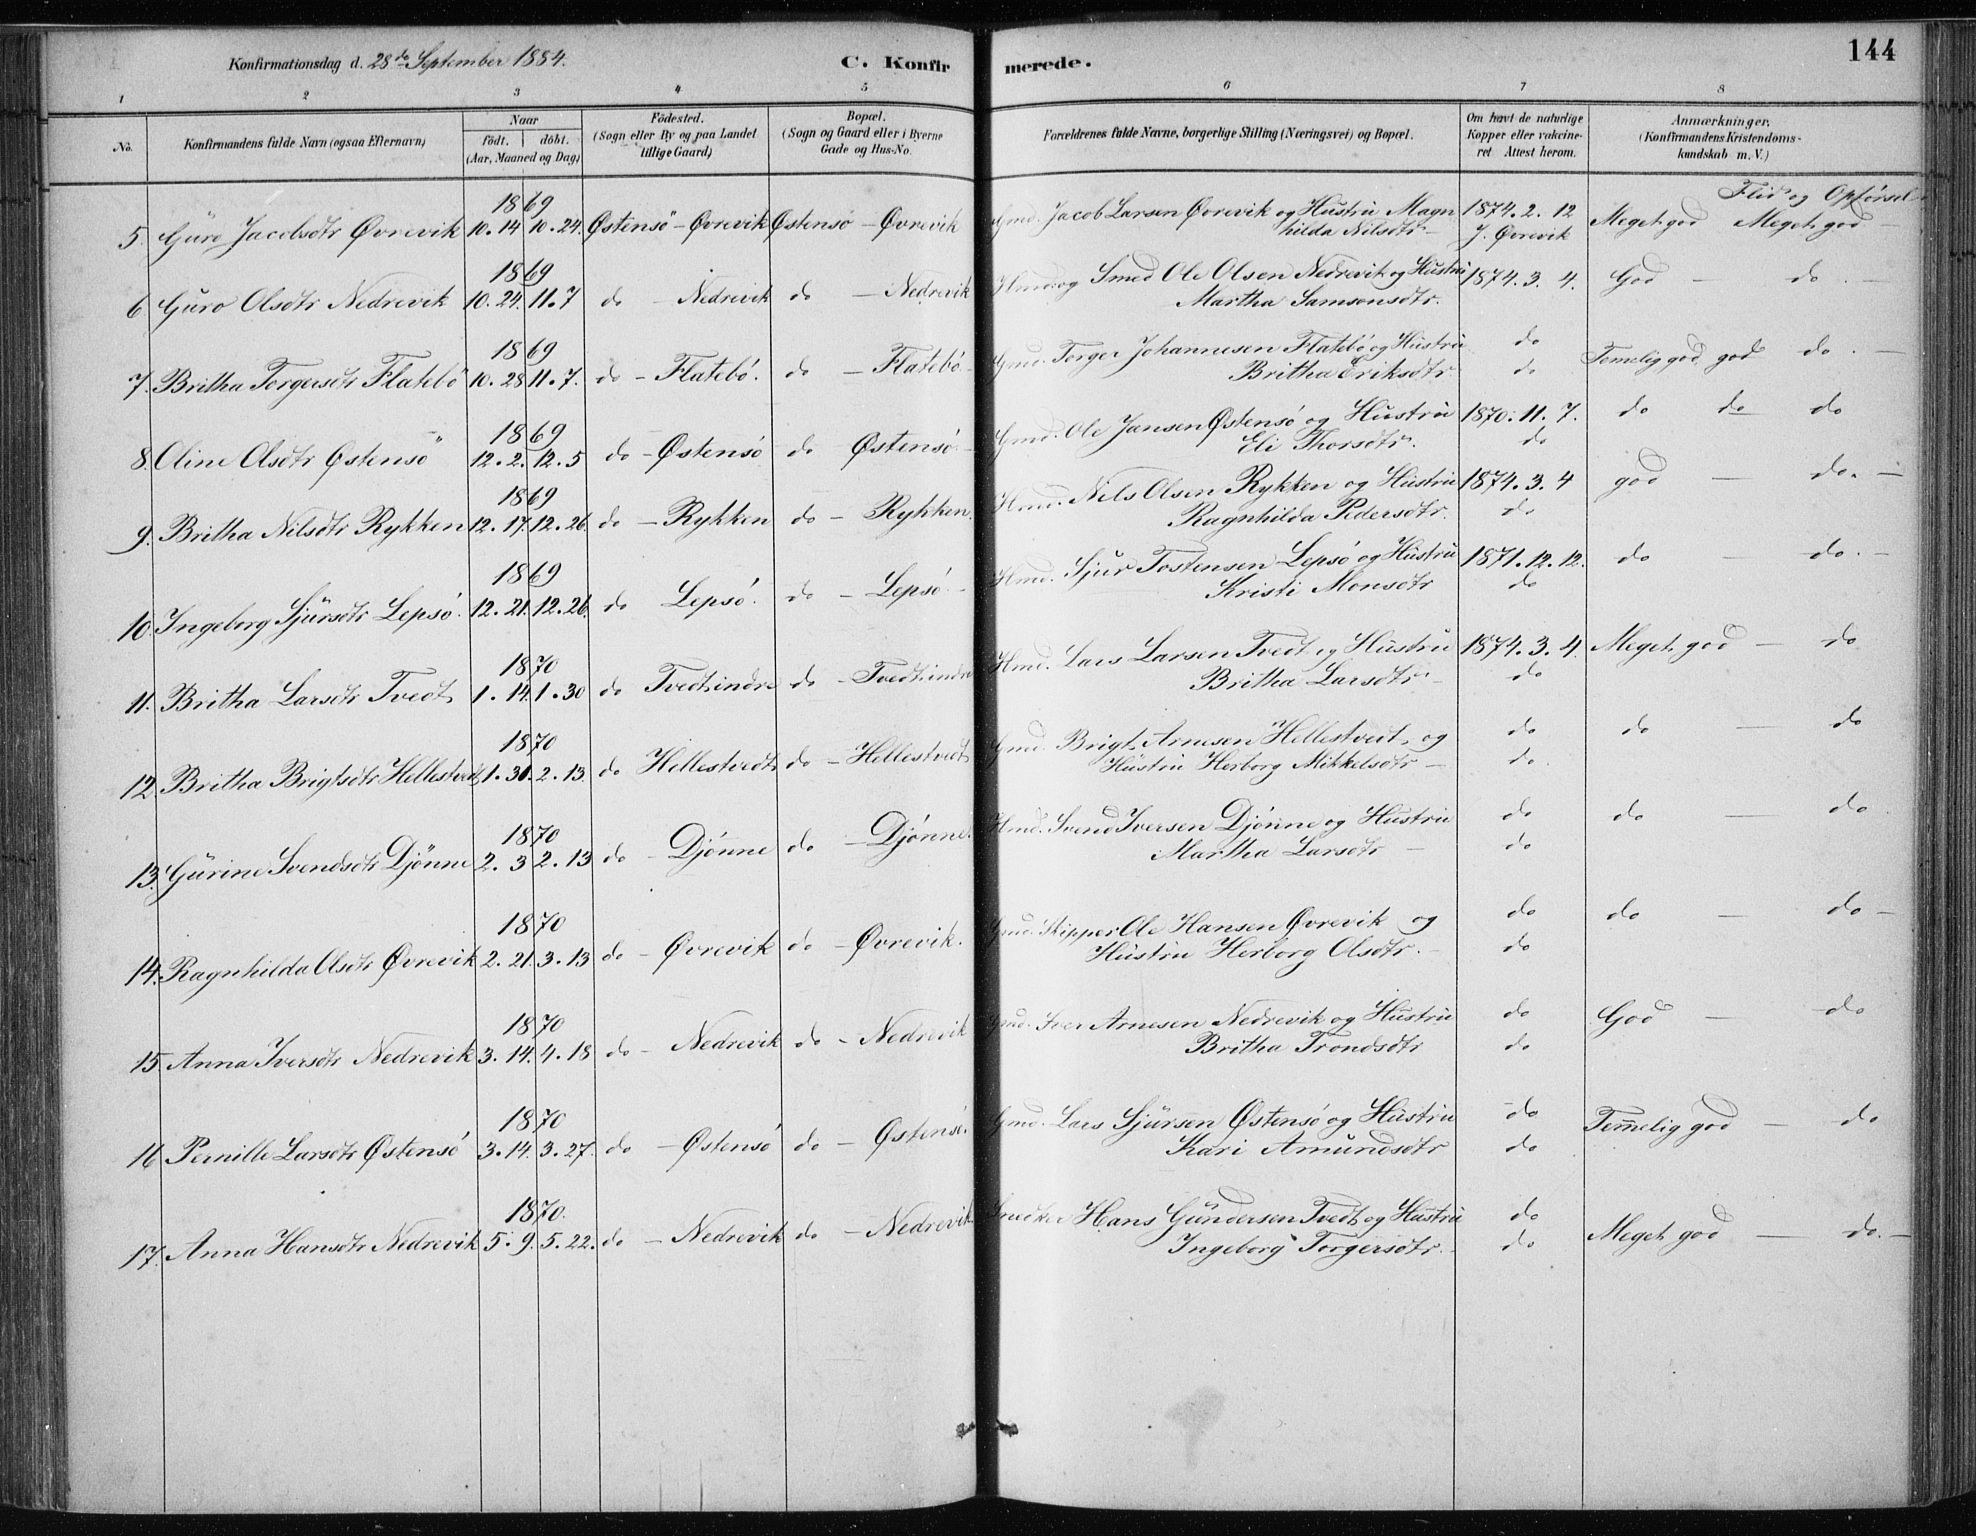 Konfirmationsdag d. 28de September 1884.
C. Konfirmerede.
144
1 2 3 4 5 6 7 8
No.
Konfirmandens fulde Navn (ogsaa Efternavn)
Naar
födt. döbt.
(Aar, Maaned og Dag)
Födested.
(Sogn eller By og paa Landet
tillige Gaard)
Bopæl.
(Sogn og Gaard eller i Byerne
Gade og Hus-No.
Forældrenes fulde Navne, borgerlige Stilling (Næringsvei) og Bopæl.
Om havt de naturlige
Kopper eller vakcine-
ret Attest herom.
Anmærkninger.
(Konfirmandens Kristendoms-
kundskab m. V.)
Flid og Opførsel
1869
5. Guro Jacobsdtr Øvrevik 10.14 10.24. Østensö - Øvrevik Østensö - Øvrevik Gmd. Jacob Larsen Øvrevik og Hustru Magn 1874.2.12 Meget god Meget god -
hilda Nilsdtr - J. Øvrevik
1869
6 Guro Olsdtr Nedrevik 10.24. 11.7 do - Nedrevik do - Nedrevik Hmd. og Smed Ole Olsen Nedrevik og Hustru 1874.3.4. God - do. -
Martha Samsonsdtr.
1869
7. Britha Torgersdtr Flatebö 10.28 11.7. do - Flatebö. do - Flatebö. Gmd. Torger Johannesen Flatebö og Hustru do Temelig god god do. -
Britha Eriksdtr. do
1869
8. Oline Olsdtr Østensö 12.2. 12.5 do - Østensö do Østensö. Gmd. Ole Jansen Østensö og Hustru 1870.11.7. do do do
Eli Thorsdtr. do
1869
9. Britha Nilsdtr Rykken 12.17. 12.26 do - Rykken do - Rykken. Hmd. Nils Olsen Rykken og Hustru 1874.3.4 god - do. -
Ragnhilda Pedersdtr. do
1869
10. Ingeborg Sjursdtr Lepsö. 12.21. 12.26. do Lepsö. do - Lepsö. - Hmd. Sjur Tostensen Lepsö og Hustru 1871.12.12. do - do. -
Kristi Monsdtr do
1870
11. Britha Larsdtr Tvedt 1.14. 1.30 do Tvedt indre do - Tvedt indre Hmd. Lars Larsen Tvedt og Hustru 1874.3.4. Meget god - do
Britha Larsdtr - do
1870
12. Britha Brigtsdtr Hellestvedt 1.31. 2.13. do Hellestvedt do - Hellestvedt Gmd. Brigt Arnesen Hellestveit og do do - do
Hustru Herborg Mikkelsdtr - do.
1870
13. Gurine Svendsdtr Djönne 2.3 2.13 do - Djönne do - Djönne. Hmd. Svend Iversen Djönne og Hustru do do - do
Martha Larsdtr - do
1870
14. Ragnhilda Olsdtr Øvrevik 2.21. 3.13 do - Øvrevik do - Øvrevik. Gmd. Skipper Ole Hansen Øvrevik og do do - do -
Hustru Herborg Olsdtr. - do
1870
15. Anna Iversdtr Nedrevik 3.14. 4.18 do - Nedrevik do - Nedrevik Gmd. Iver Arnesen Nedrevik og Hustru do God - do
Britha Trondsdtr do
1870
16 Pernille Larsdtr Østensö 3.14. 3.27. do - Østensö do - Østensö. Gmd. Lars Sjursen Østensö og Hustru do Temelig god - do
Kari Amundsdtr do
1870.
17. Anna Hansdtr Nedrevik 5.9. 5.22. do - Nedrevik do - Nedrevik. Snedker Hans Gundersen Tvedt og Hustru do Meget god - do. -
Ingeborg Torgersdtr. do